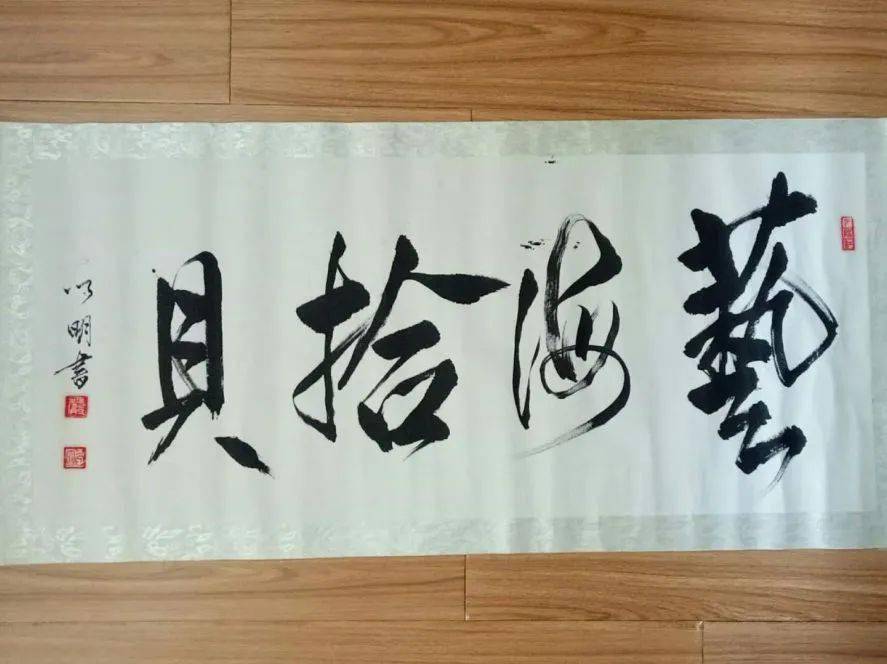 藝海拾貝
明書